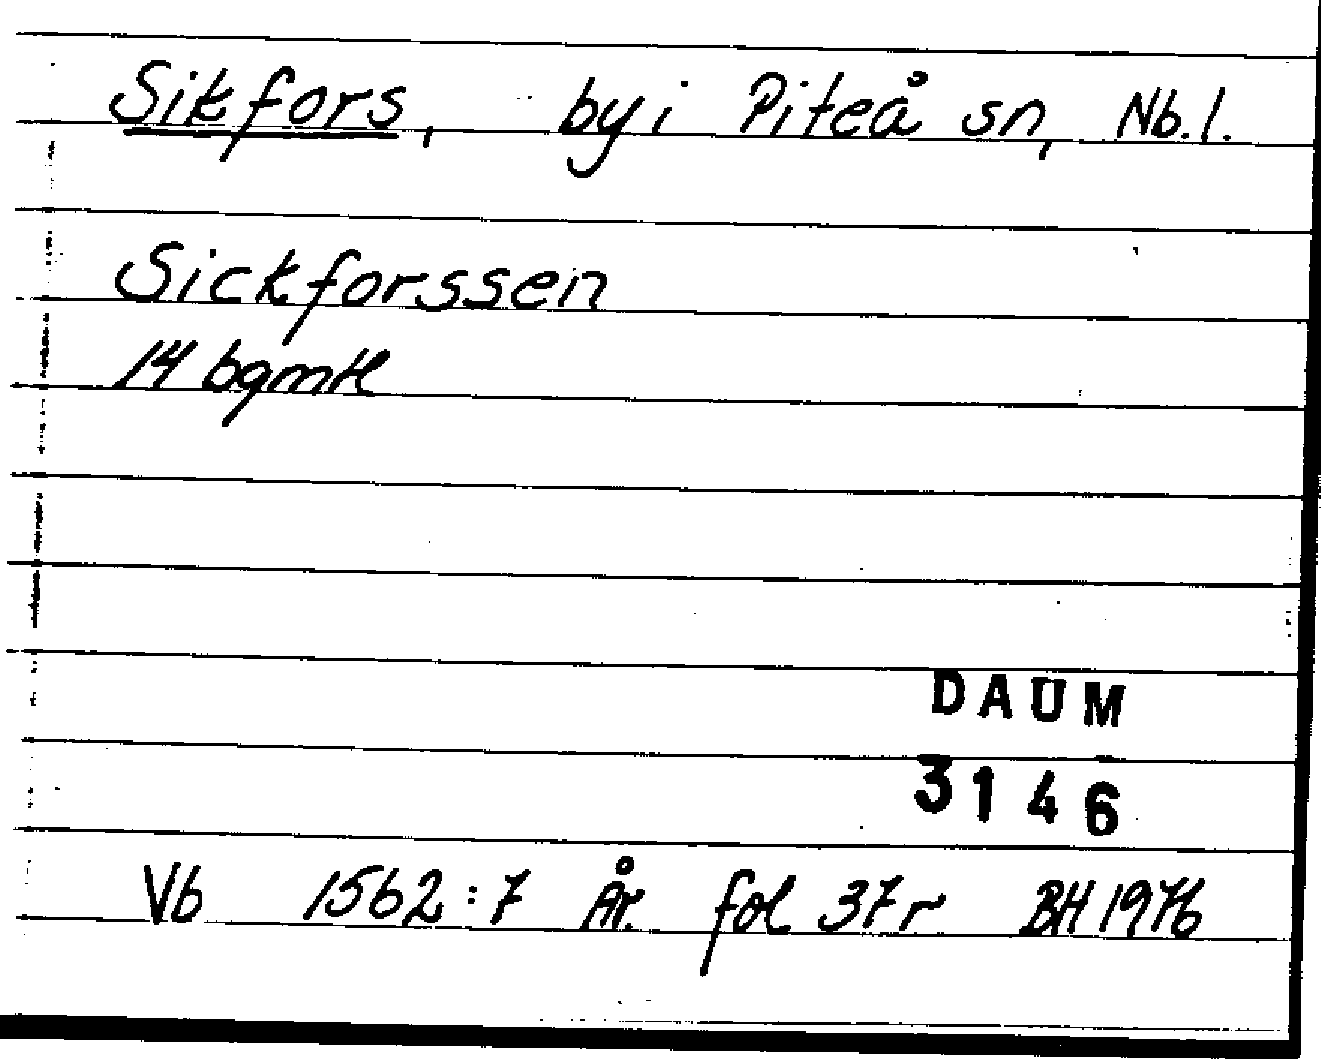 Sikfors, by i Piteå sn, Nb. l.
Sickforssen
14 bgmtl
DAUM
3146
Vb 1562:7 År. fol 37r BH 1976